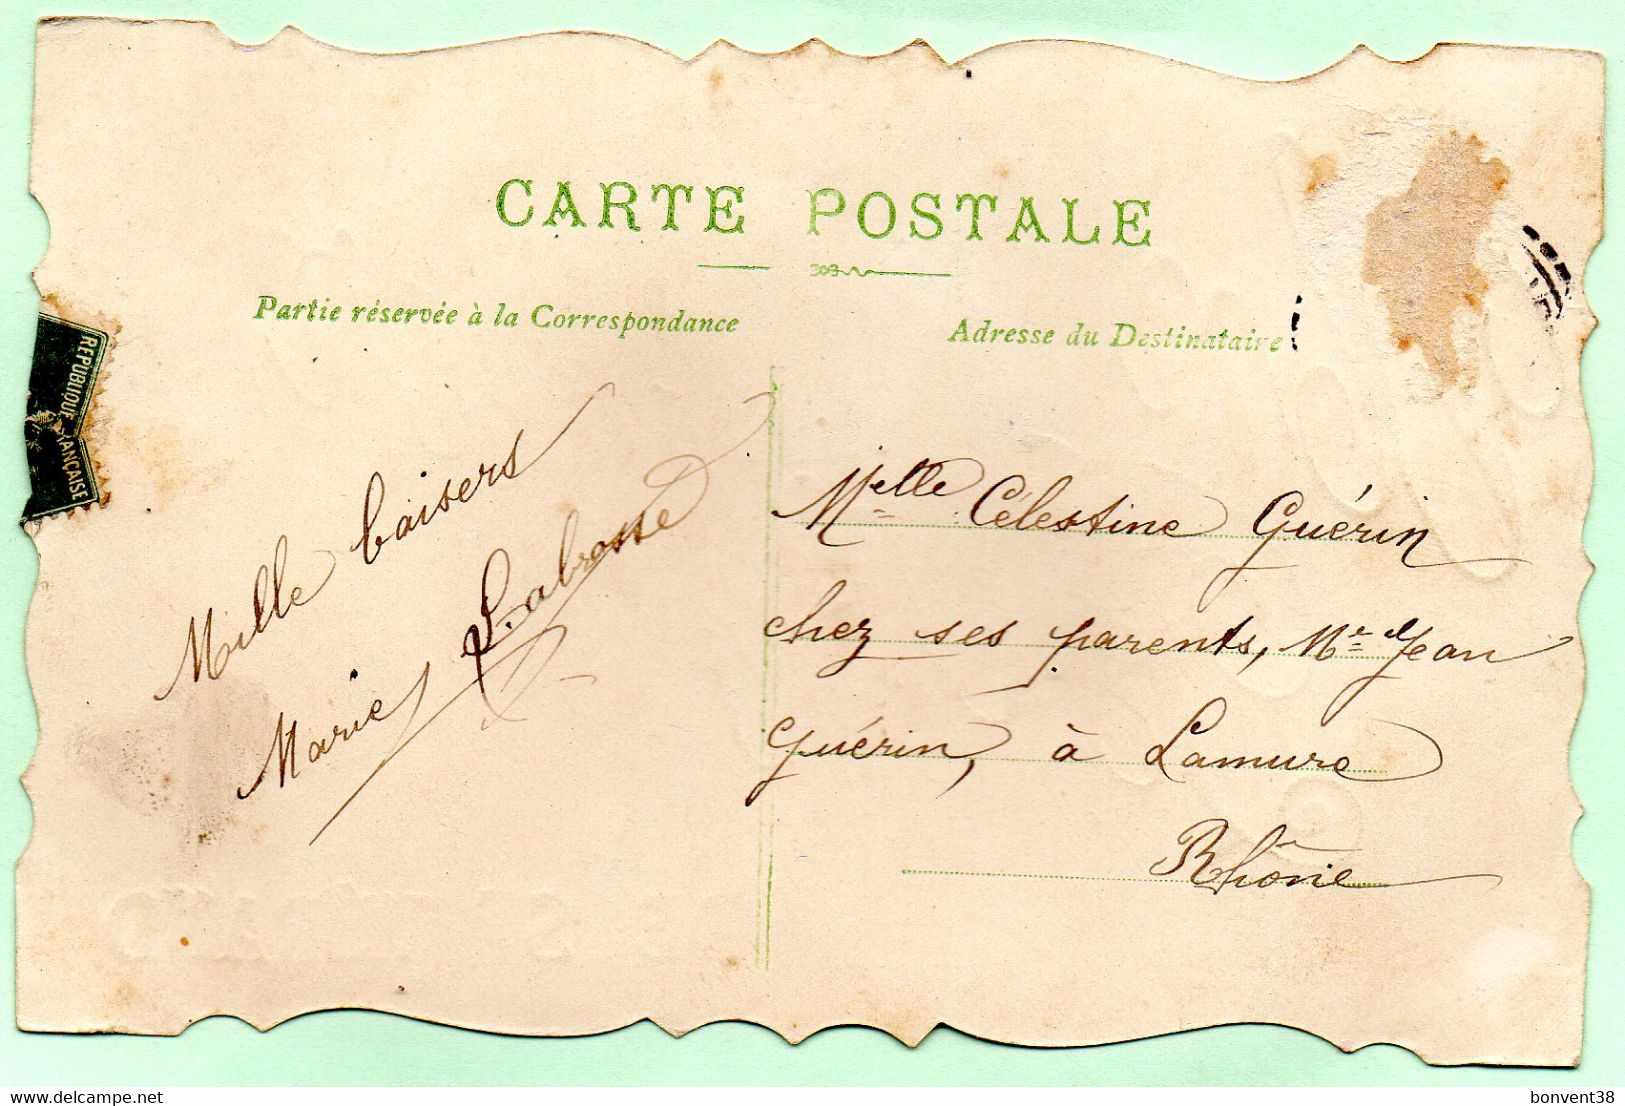 CARTE POSTALE
Partie réservée à la Correspondance
Adresse du Destinataire
REPUBLIQUE FRANÇAISE
Mille baisers
Marie Labrosse
Melle Célestine Guérin
chez ses parents, Mr Jean
Guérin, à Lamure
Rhône
Delcampe.com
bonvent38